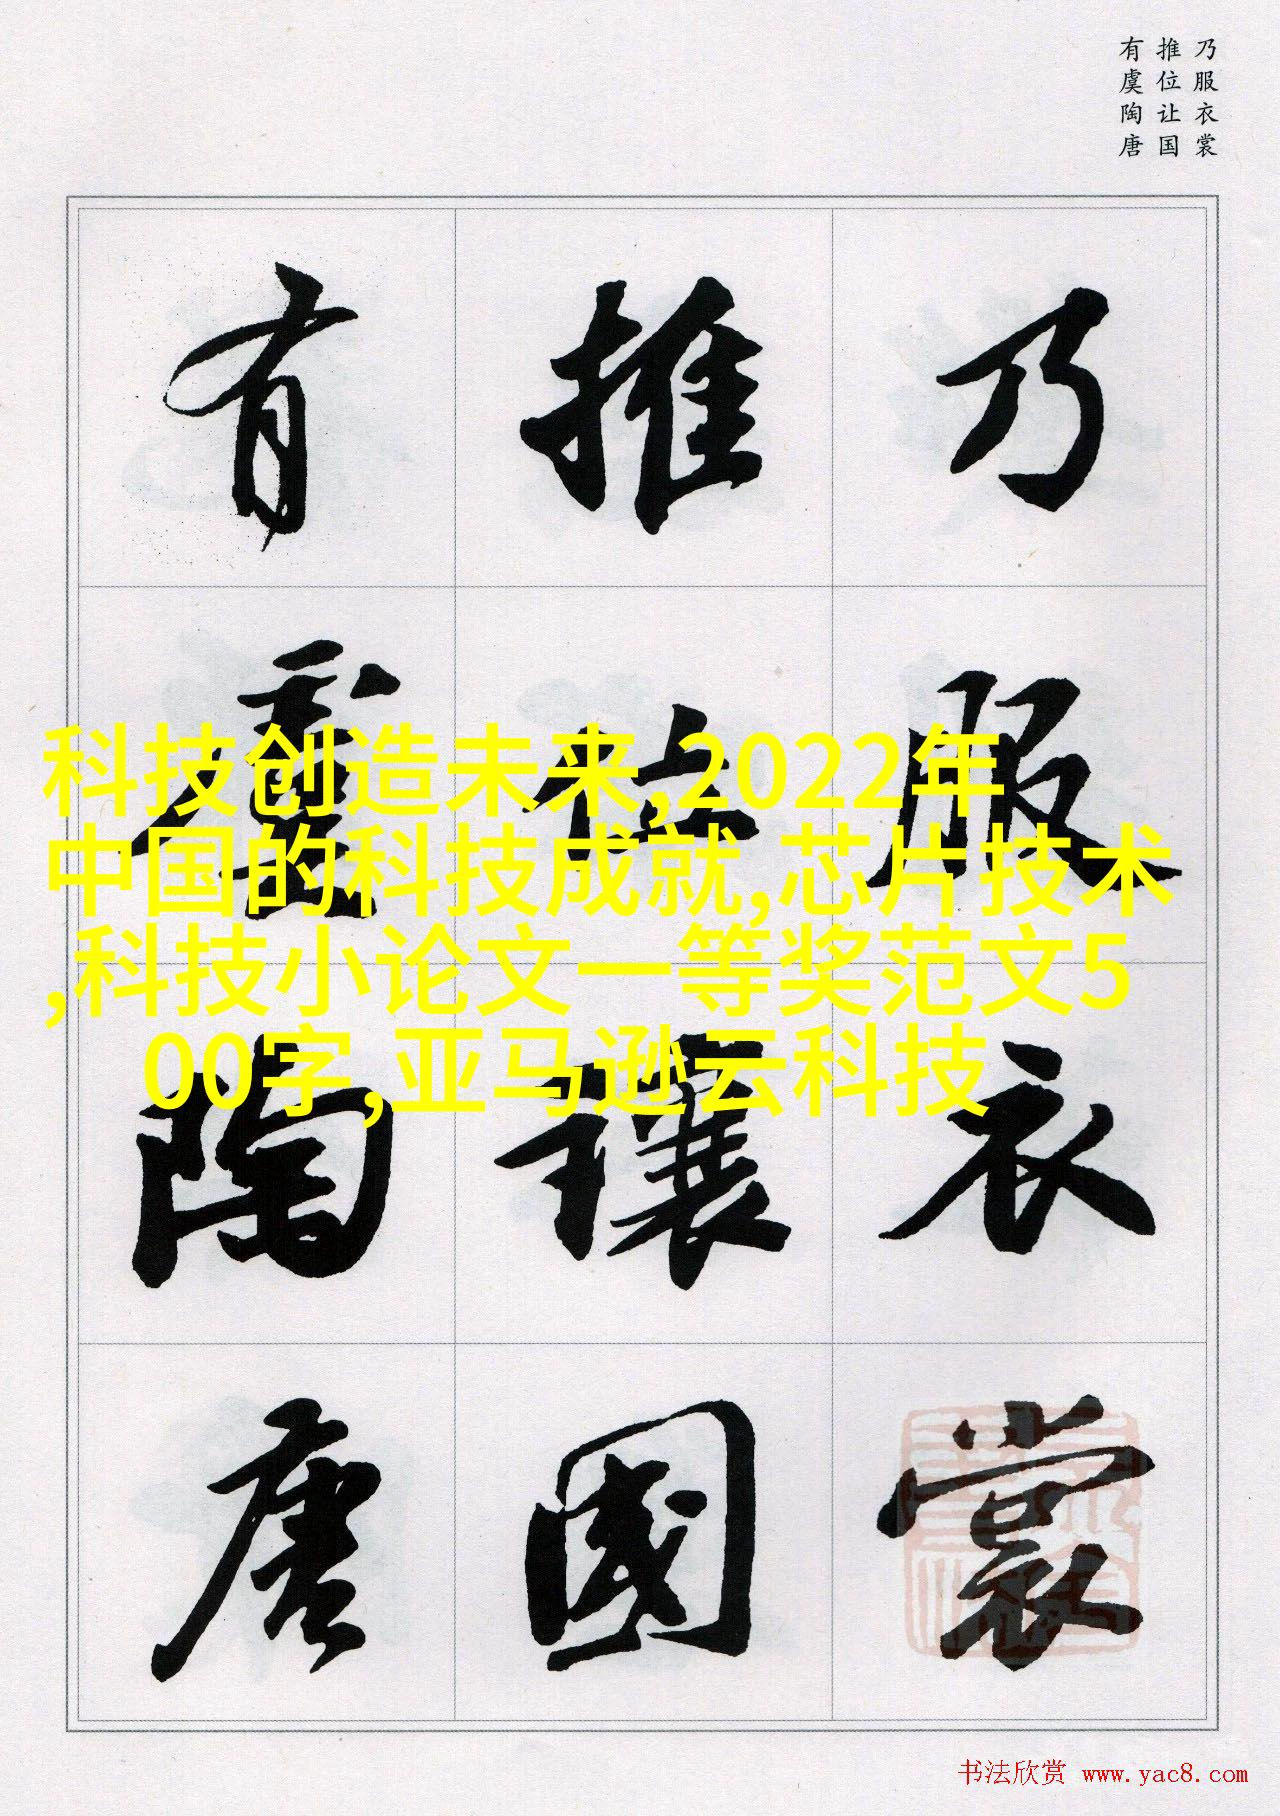 乃服衣裳
推位让国
有虞陶唐
乃服衣裳
推位讓國
有虞陶唐
科技创造未来,2022年
中国的科技成就,芯片技术
,科技小论文一等奖范文5
00字,亚马逊云科技
书法欣赏 www.yac8.com